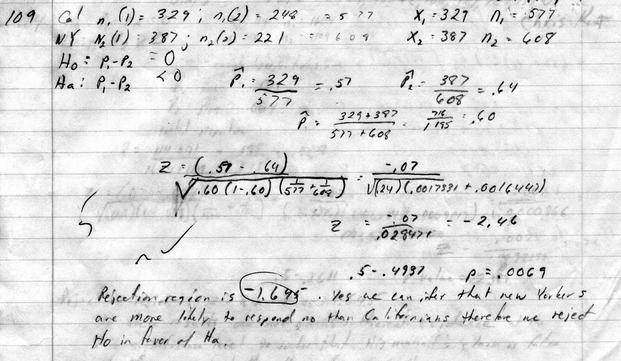 109 Cal n₁(1) = 329 ; n₁(2) = 248 = 577 X₁ = 329 n₁ = 577
NY N₂(1) = 387 ; n₂(2) = 221 = 608 X₂ = 387 n₂ = 608
Ho: P₁-P₂ = 0
Ha: P₁-P₂ < 0 P̂₁ = 329/577 = .57 P̂₂ = 387/608 = .64
P̂ = (329+387)/(577+608) = 716/1185 = .60
Z = (.57 - .64)/√(.60(1-.60)(1/577 + 1/608)) = -.07/√((.24)(.0017331 + .0016447))
Z = -.07/.028471 = -2.46
.5 - .4931 p = .0069
Rejection region is -1.645. Yes we can infer that new Yorkers
are more likely to respond no than Californians therefore we reject
Ho in favor of Ha.